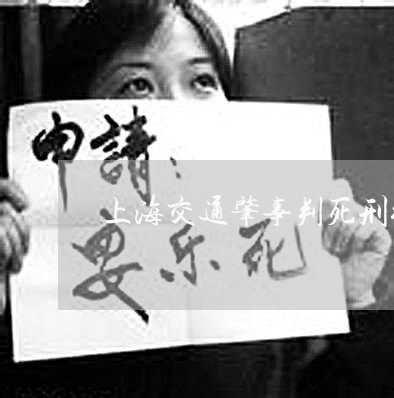 申請：
上海交通肇事判死刑
安乐死